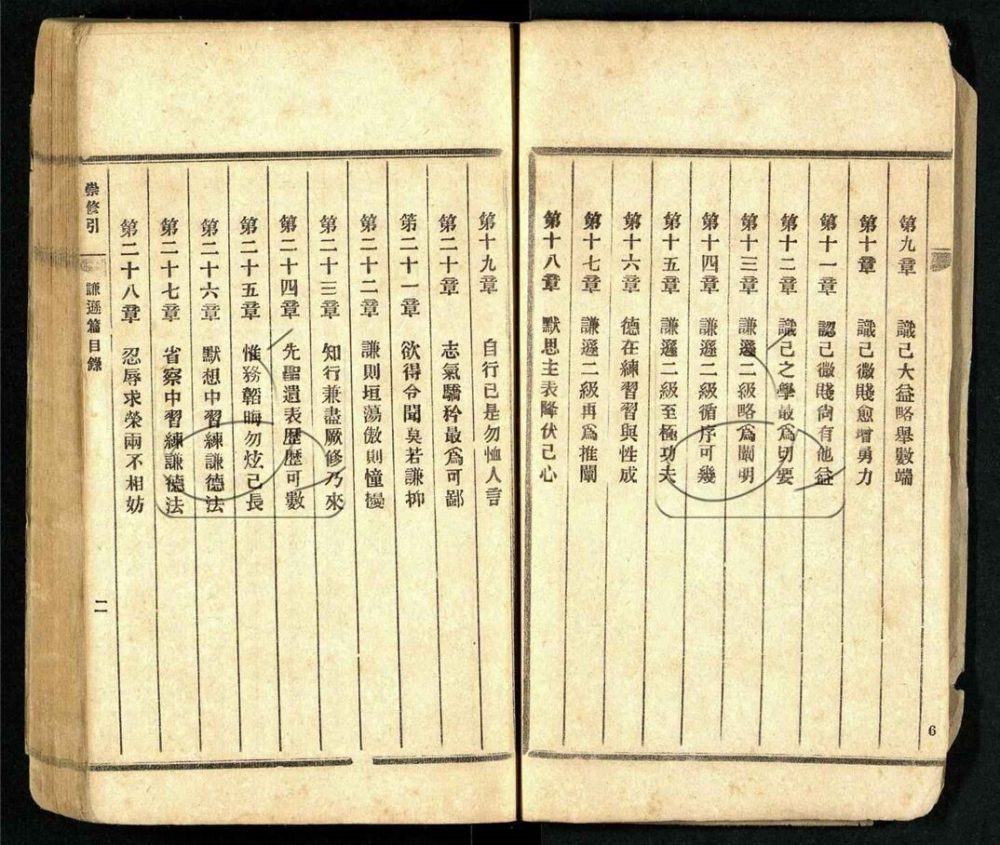 第九章　識己大益略舉數端
第十章　識己微賤愈增勇力
第十一章　認己微賤尚有他益
第十二章　識己之學最爲切要
第十三章　謙遜二級略爲闡明
第十四章　謙遜二級循序可幾
第十五章　謙遜二級至極功夫
第十六章　德在練習習與性成
第十七章　謙遜二級再爲推闡
第十八章　默思主表降伏己心
6
第十九章　自行已是勿恤人言
第二十章　志氣驕矜最爲可鄙
第二十一章　欲得令聞莫若謙抑
第二十二章　謙則垣蕩傲則憧擾
第二十三章　知行兼盡厥修乃來
第二十四章　先聖遺表歷歷可數
第二十五章　惟務韜晦勿炫己長
第二十六章　默想中習練謙德法
第二十七章　省察中習練謙德法
第二十八章　忍辱求榮兩不相妨
崇修引　謙遜篇目錄　二